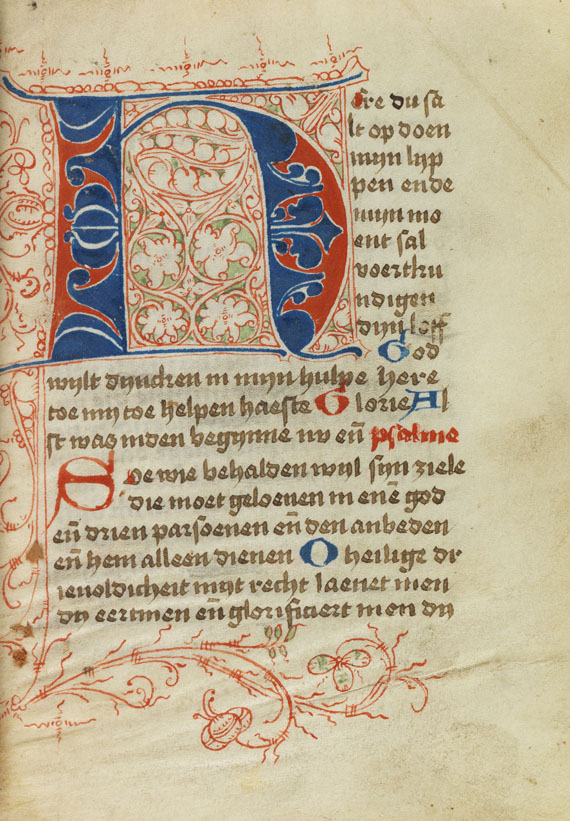 Here du sa
lt op doen
mijn lyp
pen ende
mijn mo
ent sal
voerthu
ndigen
dijn loff
God
wylt dyncken in mijn hulpe here
toe my toe helpen haeste Glorie Al
st was inden begynne nv eñ psalme
Soe wie behalden wyl syn ziele
die moet geloeuen in enē god
eñ drien parsoenen eñ den anbeden
eñ hem alleen dienen O heilige dr
ieuoldicheit myt recht laeuet men
dy eertmen eñ glorificiert men dy